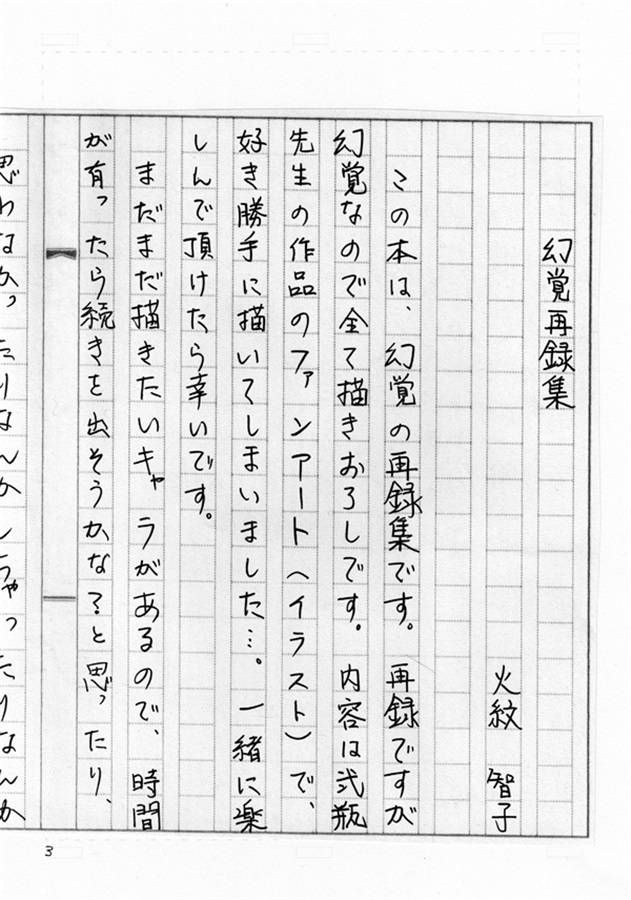 幻覚再録集
火紋 智子
この本は、幻覚の再録集です。再録ですが
幻覚なので全て描きおろしです。内容は弐瓶
先生の作品のファンアート(イラスト)で、
好き勝手に描いてしまいました…。一緒に楽
しんで頂けたら幸いです。
まだまだ描きたいキャラがあるので、時間
が有ったら続きを出そうかな？と思ったり、
思わなかったりなんかしちゃったりなんか
3